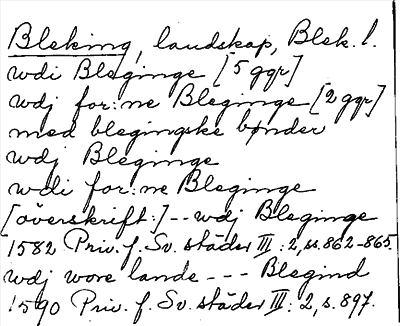 Bleking, landskap, Blek. l.
wdi Bleginge [5 ggr]
wdj for:ne Bleginge [2 ggr]
med blegingske bønder
wdj Bleginge
wdi for:ne Bleginge
[överskrift:] -- wdj Bleginge
1582 Priv. f. Sv. städer III: 2, ss. 862-865
wdj wore lande --- Blegind
1590 Priv. f. Sv. städer III: 2, s. 897.